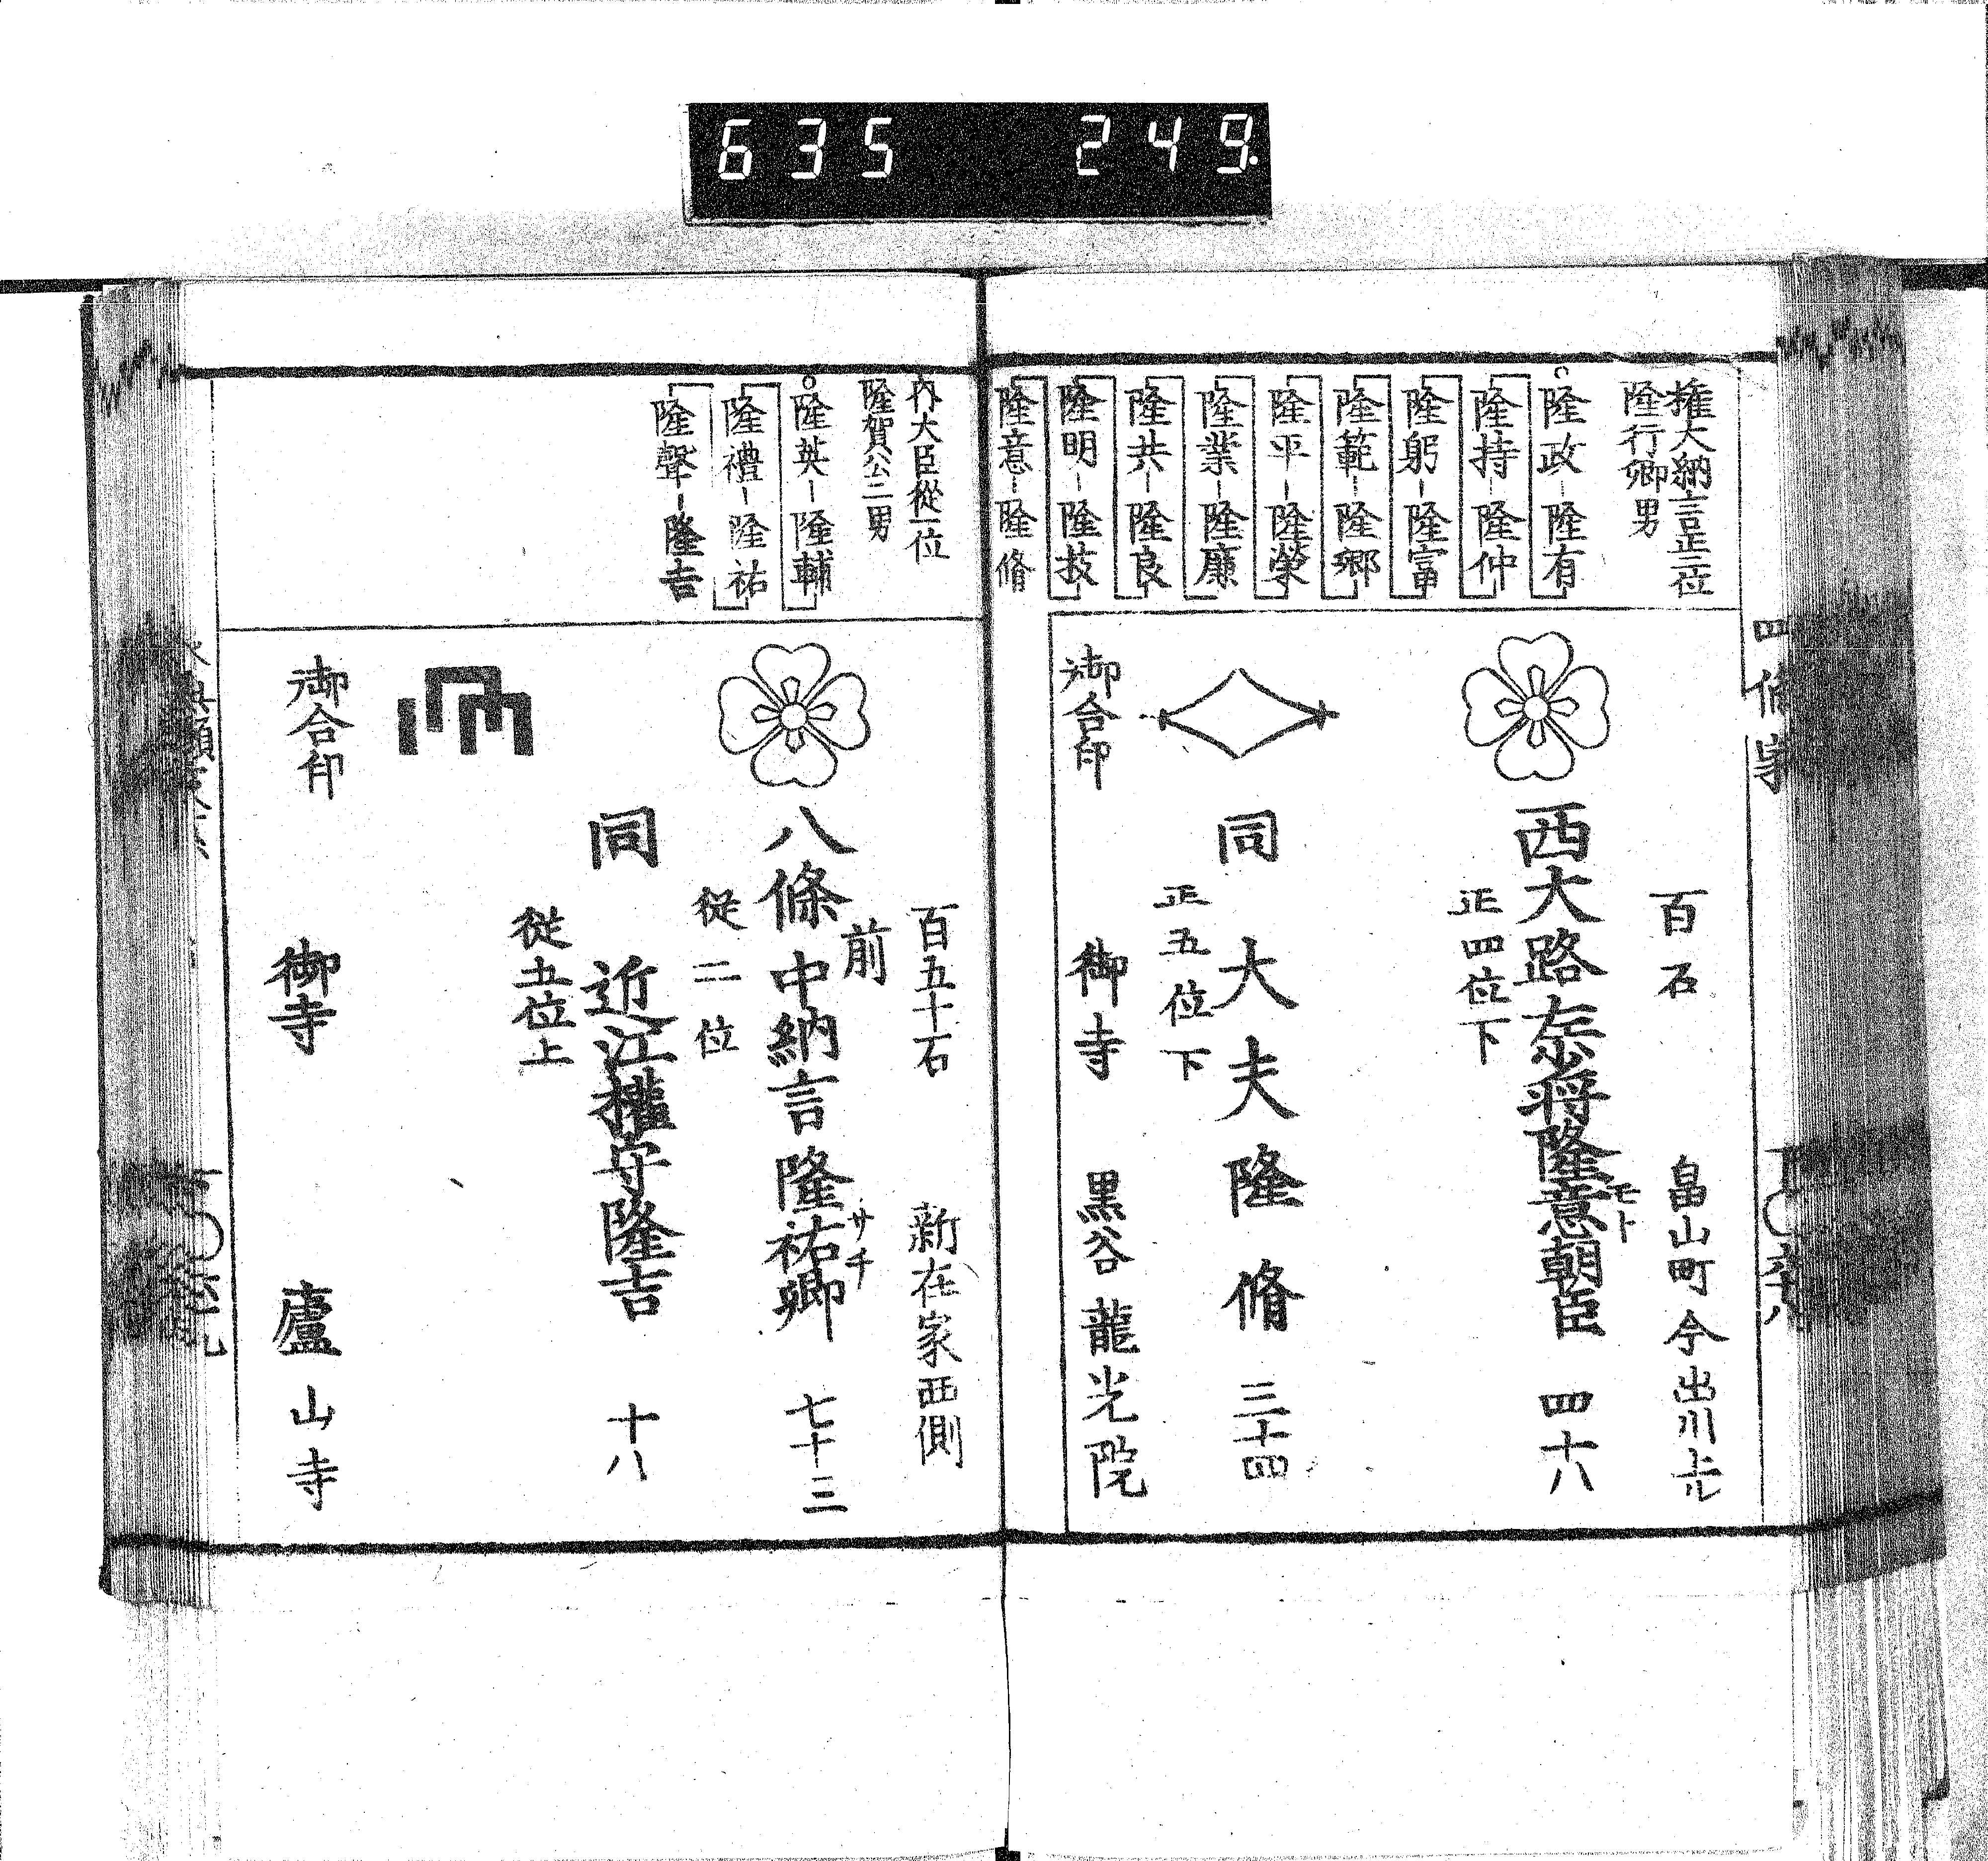 635 249
四條家
權大納言正二位
隆行卿男
隆政-隆有
隆持-隆仲
隆躬-隆富
隆範-隆郷
隆平-隆榮
隆業-隆廉
隆共-隆良
隆明-隆枝
隆意-隆脩
百石 畠山町今出川上ル
西大路 將隆意朝臣 四十六
モト
正四位下
同 大夫隆脩 三十四
正五位下
御合印 御寺 黒谷 龍光院
内大臣從一位
隆賀公二男
隆英-隆輔
隆禮-隆祐
隆聲-隆吉
百五十石 新在家西側
前
八條中納言隆祐卿 七十三
サチ
從二位
同 近江權守隆吉 十八
從五位上
御合印 御寺 廬山寺